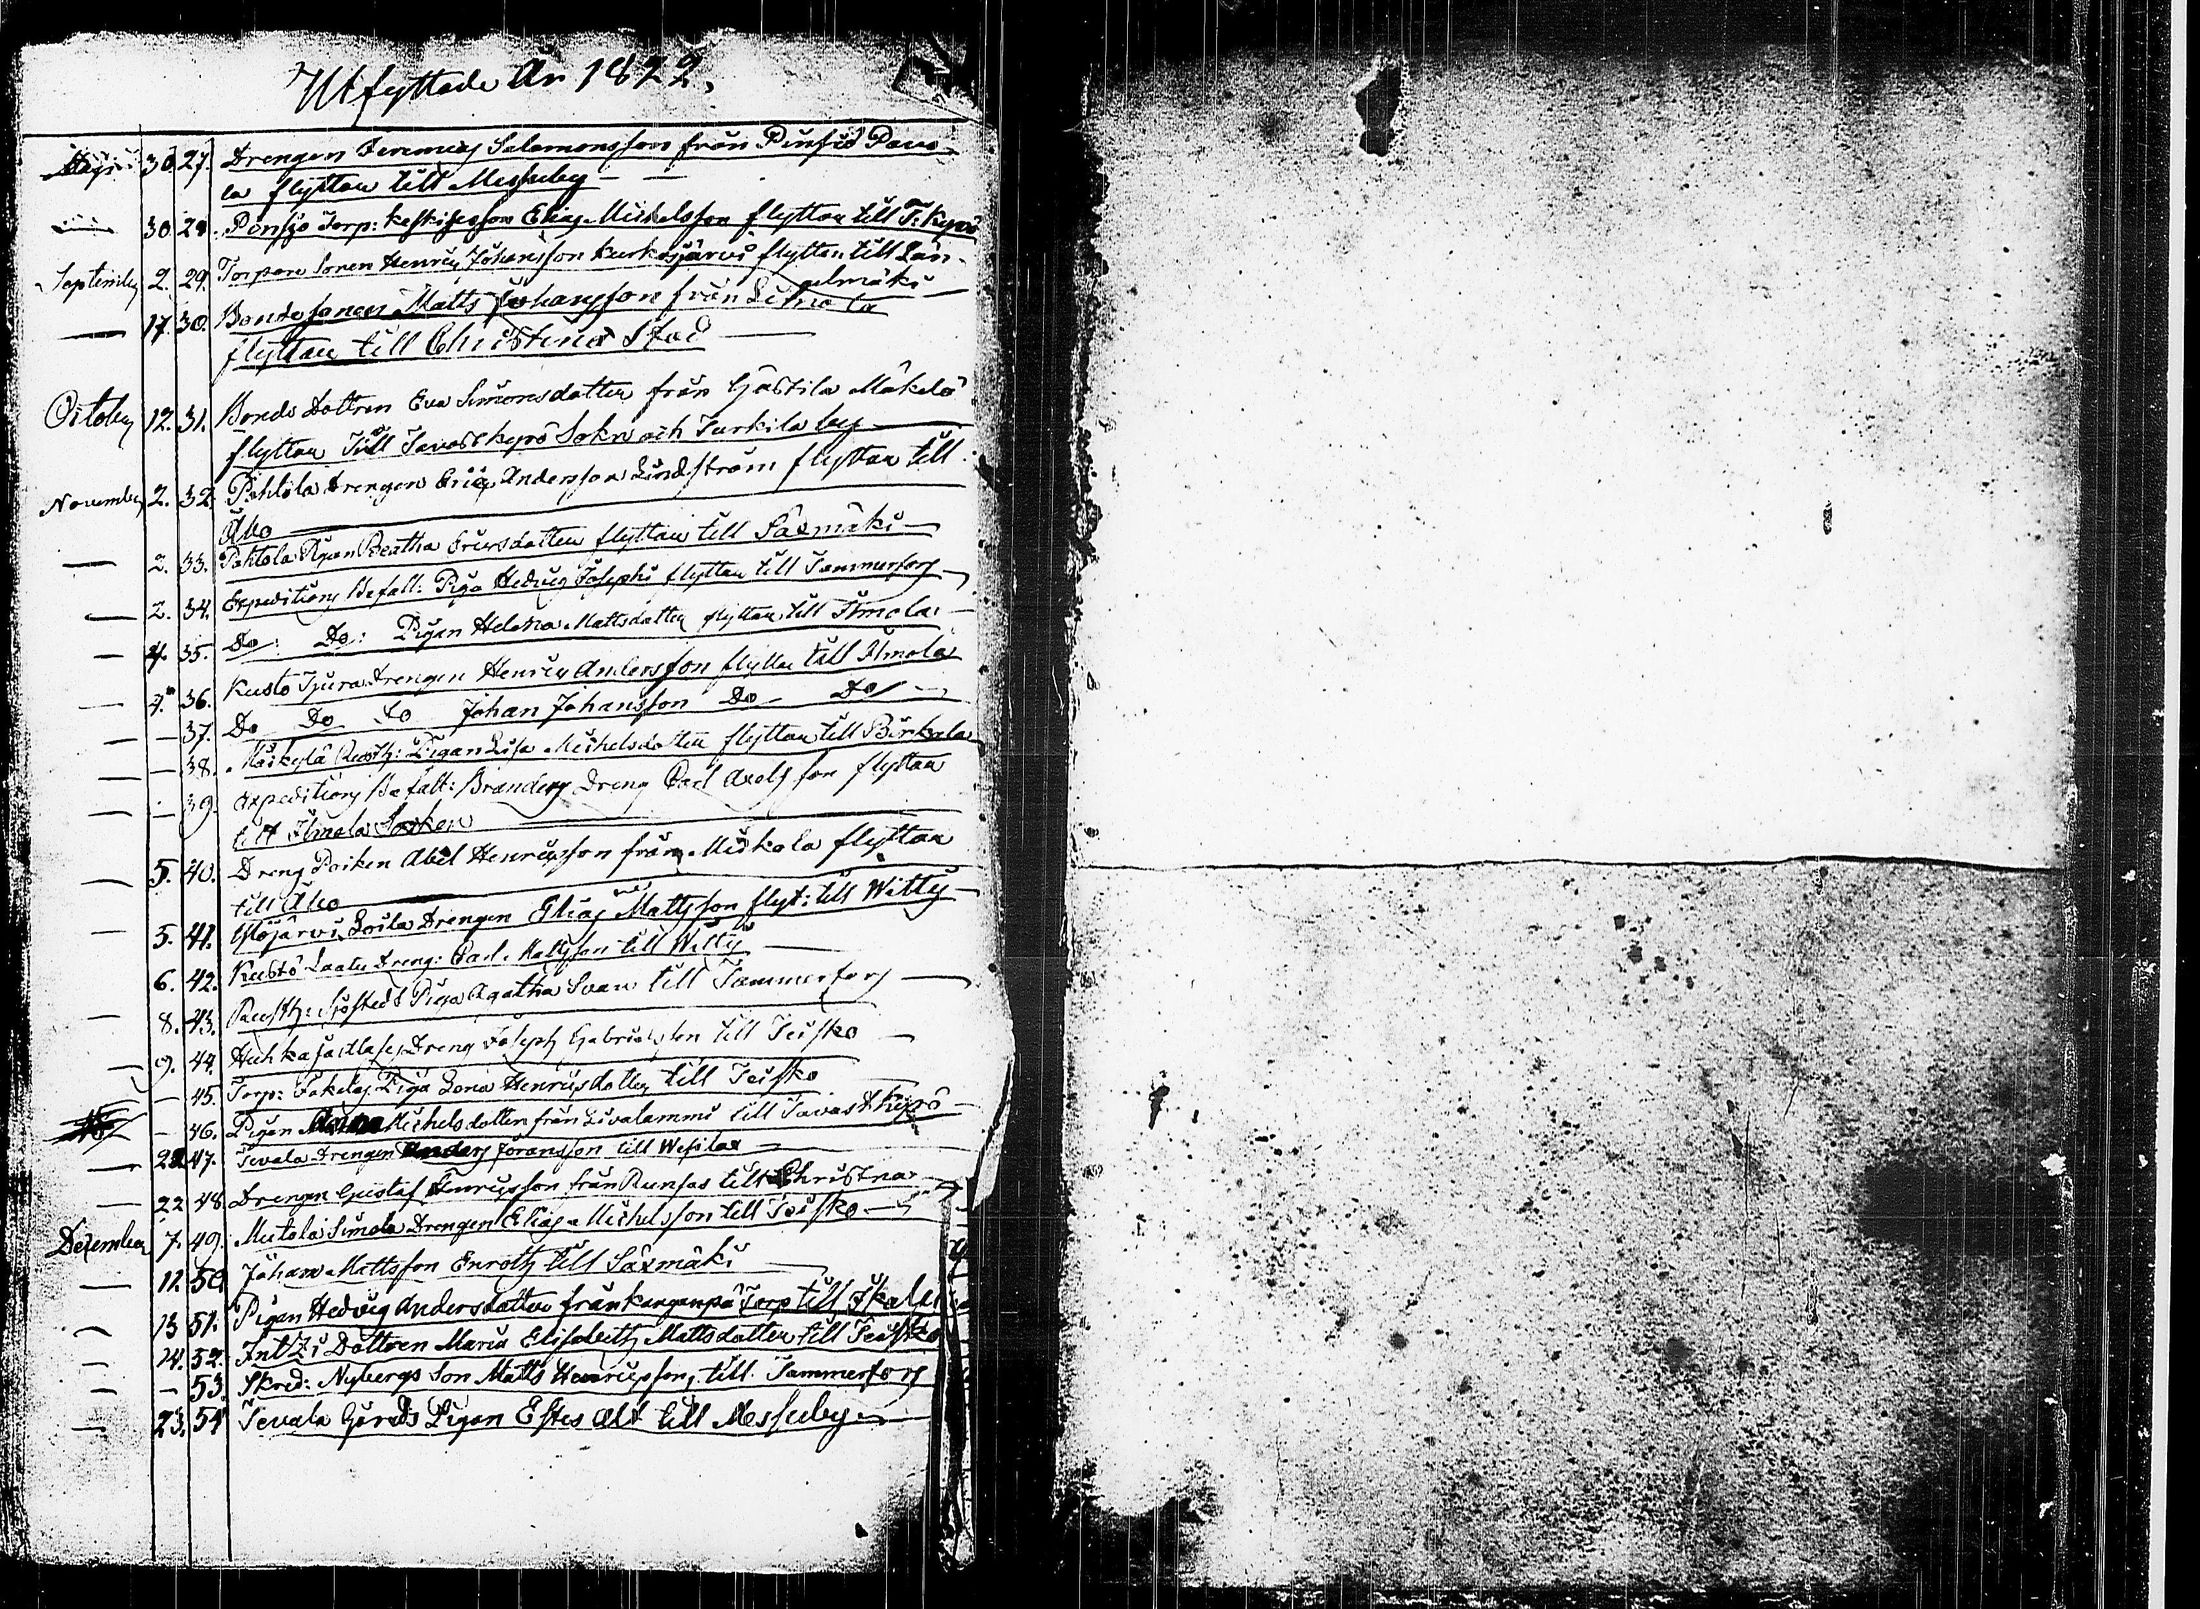 Utfyttade År 1822.
30. 27. Drengen Jeremias Salomonsson från Pinsiö Pava
la flyttar till Messuby
30 28. Pensjö Torp: Keskisesson Elias Michelsson flyttar till T: kyrö
September 2. 29. Torpare Sonen Henric Johansson kurkosjärvi flyttar till Län-
gelmäki
17. 30. Bondesonen Matts Johansson från Simola
flyttar till Christina Stad
October 12. 31. Bonde Dottren Eva Simonsdotter från HäStila Mäkelä
flyttar Till Tavastkyrö Sokn och Turkila by
November 2. 32. Pohtola Drengen Eric Andersson Lindström flyttar till
Åbo
2. 33. Pohtola Pigan Beatha Ericsdotter flyttar till Säxmäki
2. 34. Expeditions Befall: Piga Hedvig Josephi flyttar till Tammerfors
4. 35. Do: Do: Pigan Helena Mattsdotter flyttar till Ilmola
4. 36. Kusto Drengen Henric Andersson flyttar till Ilmola
37. Do Do Do Johan Johansson Do Do
38. Mäkylä Rusth: Pigan Lisa Michelsdotter flyttar till Birkala
39. Expeditions Befalt: Branders Dreng Carl Axelsson flyttar
till Ilmola Socken
5. 40. Dreng Poiken Abel Henricsson från Miskola flyttar
till Åbo
5. 41. Ylöjärvi Soila Drengen Elias Mattsson flyt: till Witty
6. 42. Kustö Laatu Dreng: Carl Mattsson till Witty
8. 43. Rusth: Sjöstedt Piga Agatha Svan till Tammerfors
9. 44. Dreng Joseph Gabrielsson till Teisko
45. Torp: Piga Lena Henricsdotter till Teisko
46. Pigan Anna Michelsdotter från Livalammi till Tavastkyrö
22 47. Tevala Drengen Anders Göransson till Wesilax
22 48 Drengen Gustaf Henricsson från Runsas till Christna
Dezember 7. 49. Mutala Simola Drengen Elias Michelsson till Teisko
12 50 Johan Mattsson Enroth till Säxmäki
13 51. Pigan Hedvig Andersdotter från kangenpä Torp till Ikalis
14. 52. Inttzi Dottren Maria Elisabeth Mattsdotter till Teisko
53. Skred: Nybergs Son Matts Henricsson, till Tammerfors
23. 54 Tevala Gårds Pigan Estes Alt till Messuby